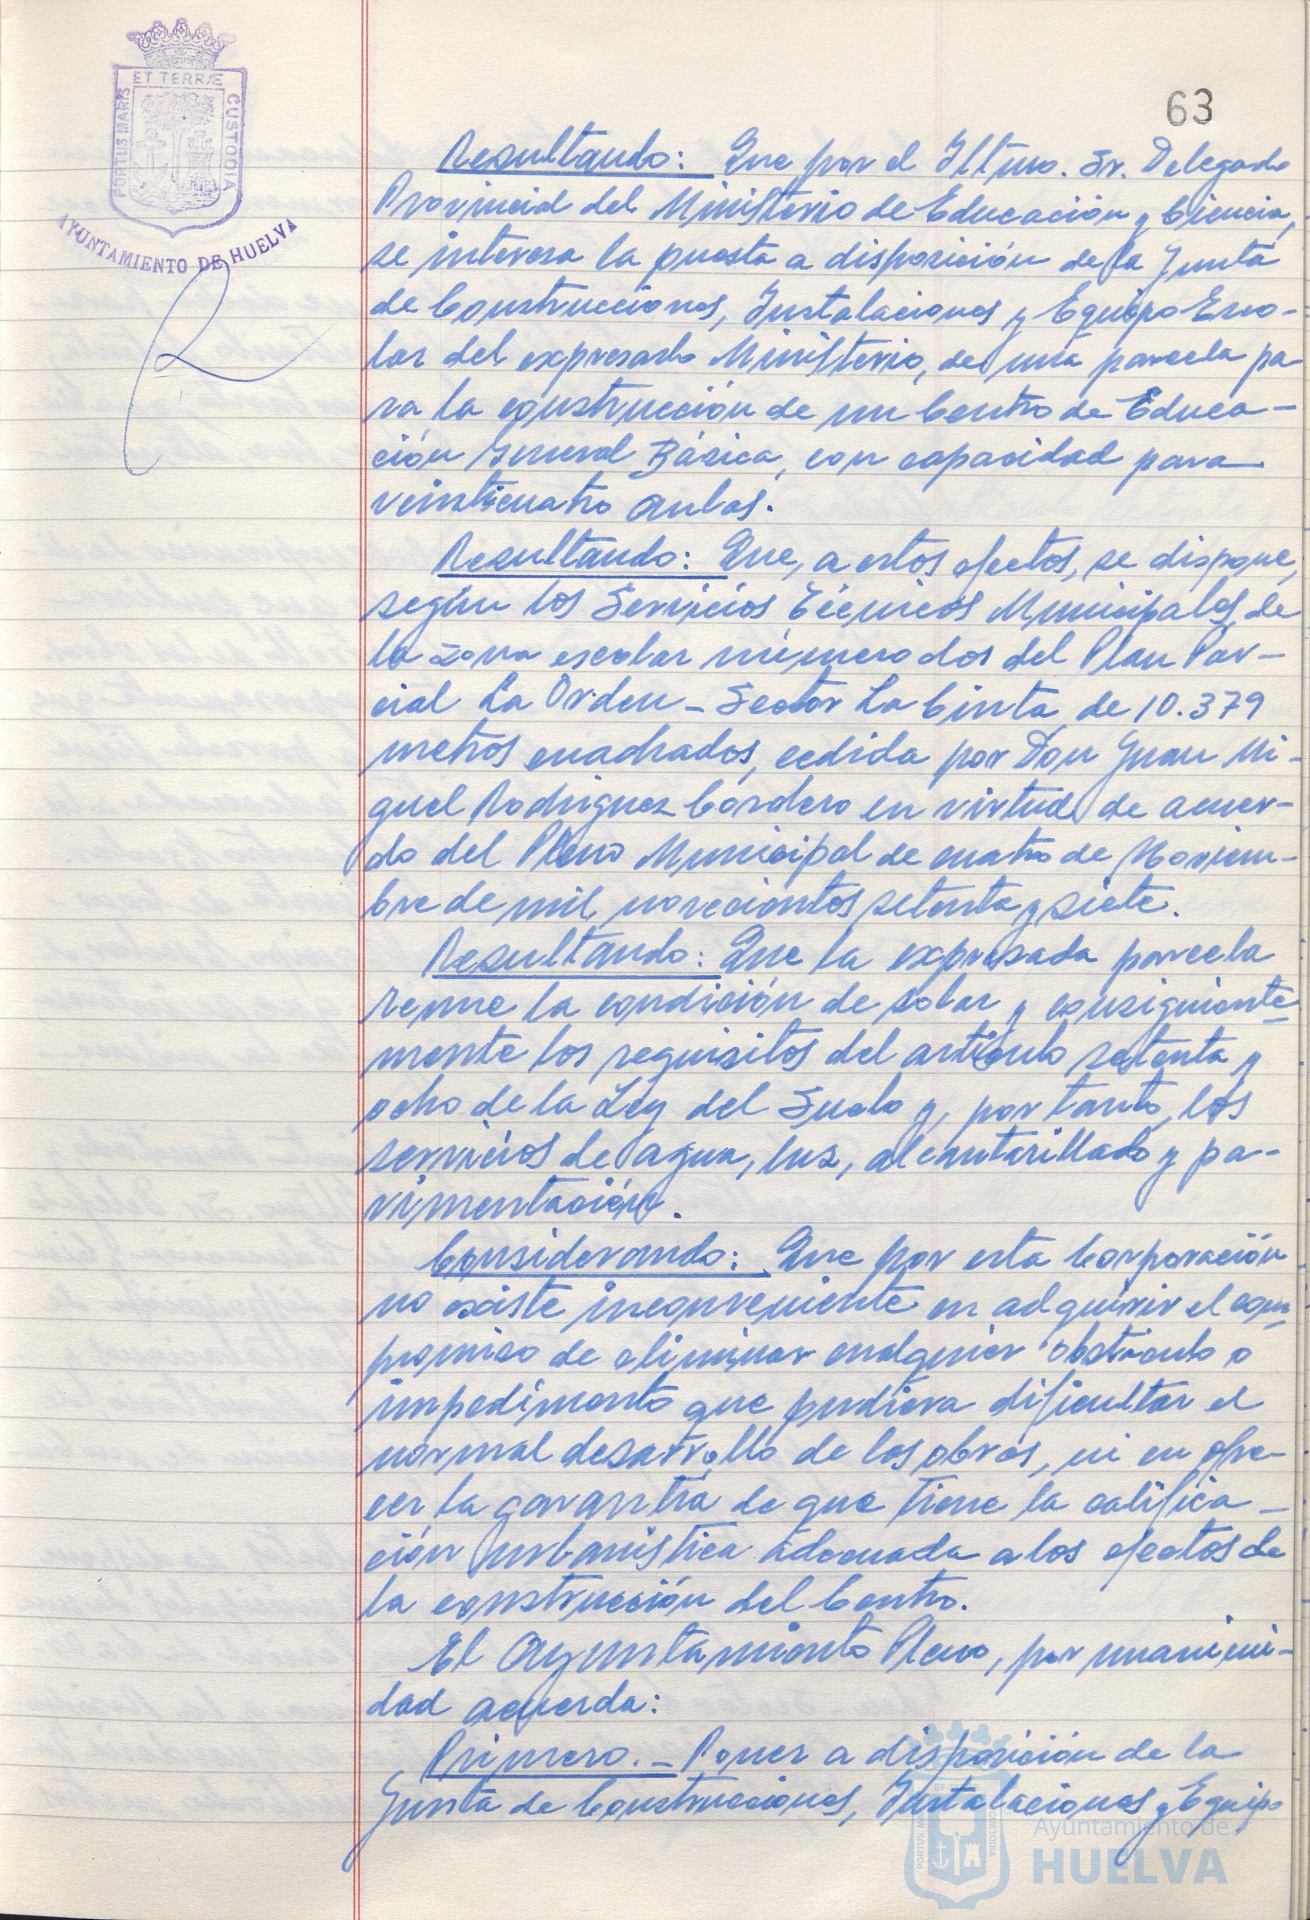 63
ET TERRÆ
PORTUS MARIS
CUSTODIA
AYUNTAMIENTO DE HUELVA
Resultando: Que por el Iltmo. Sr. Delegado
Provincial del Ministerio de Educación y Ciencia,
se interesa la puesta a disposición de la Junta
de Construcciones, Instalaciones y Equipo Esco-
lar del expresado Ministerio, de una parcela pa
ra la construcción de un Centro de Educa-
ción General Básica, con capacidad para
veinticuatro aulas.
Resultando: Que, a estos efectos, se dispone,
según los Servicios Técnicos Municipales, de
la zona escolar número dos del Plan Par-
cial La Orden - Sector La Cinta de 10.379
metros cuadrados, cedida por Don Juan Mi-
guel Rodríguez Cordero en virtud de acuer-
do del Pleno Municipal de cuatro de Noviem-
bre de mil novecientos setenta y siete.
Resultando: Que la expresada parcela
reune la condición de solar y consiguiente-
mente los requisitos del artículo setenta y
ocho de la Ley del Suelo y, por tanto, los
servicios de agua, luz, alcantarillado y pa-
vimentación.
Considerando: Que por esta Corporación
no existe inconveniente en adquirir el com-
promiso de eliminar cualquier obstáculo o
impedimento que pudiera dificultar el
normal desarrollo de las obras, ni en ofre-
cer la garantía de que tiene la califica-
ción urbanística adecuada a los efectos de
la construcción del Centro.
El Ayuntamiento Pleno, por unanimi-
dad acuerda:
Primero.- Poner a disposición de la
Junta de Construcciones, Instalaciones y Equipo
Ayuntamiento de
HUELVA